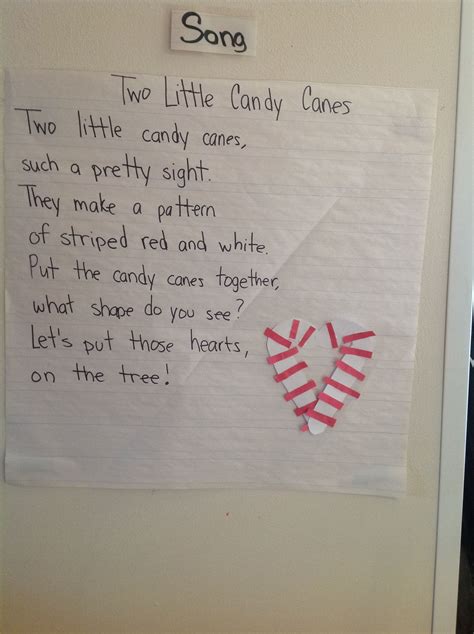 Song
Two Little Candy Canes
Two little candy canes,
such a pretty sight.
They make a pattern
of striped red and white.
Put the candy canes together,
what shape do you see?
Let's put those hearts,
on the tree!